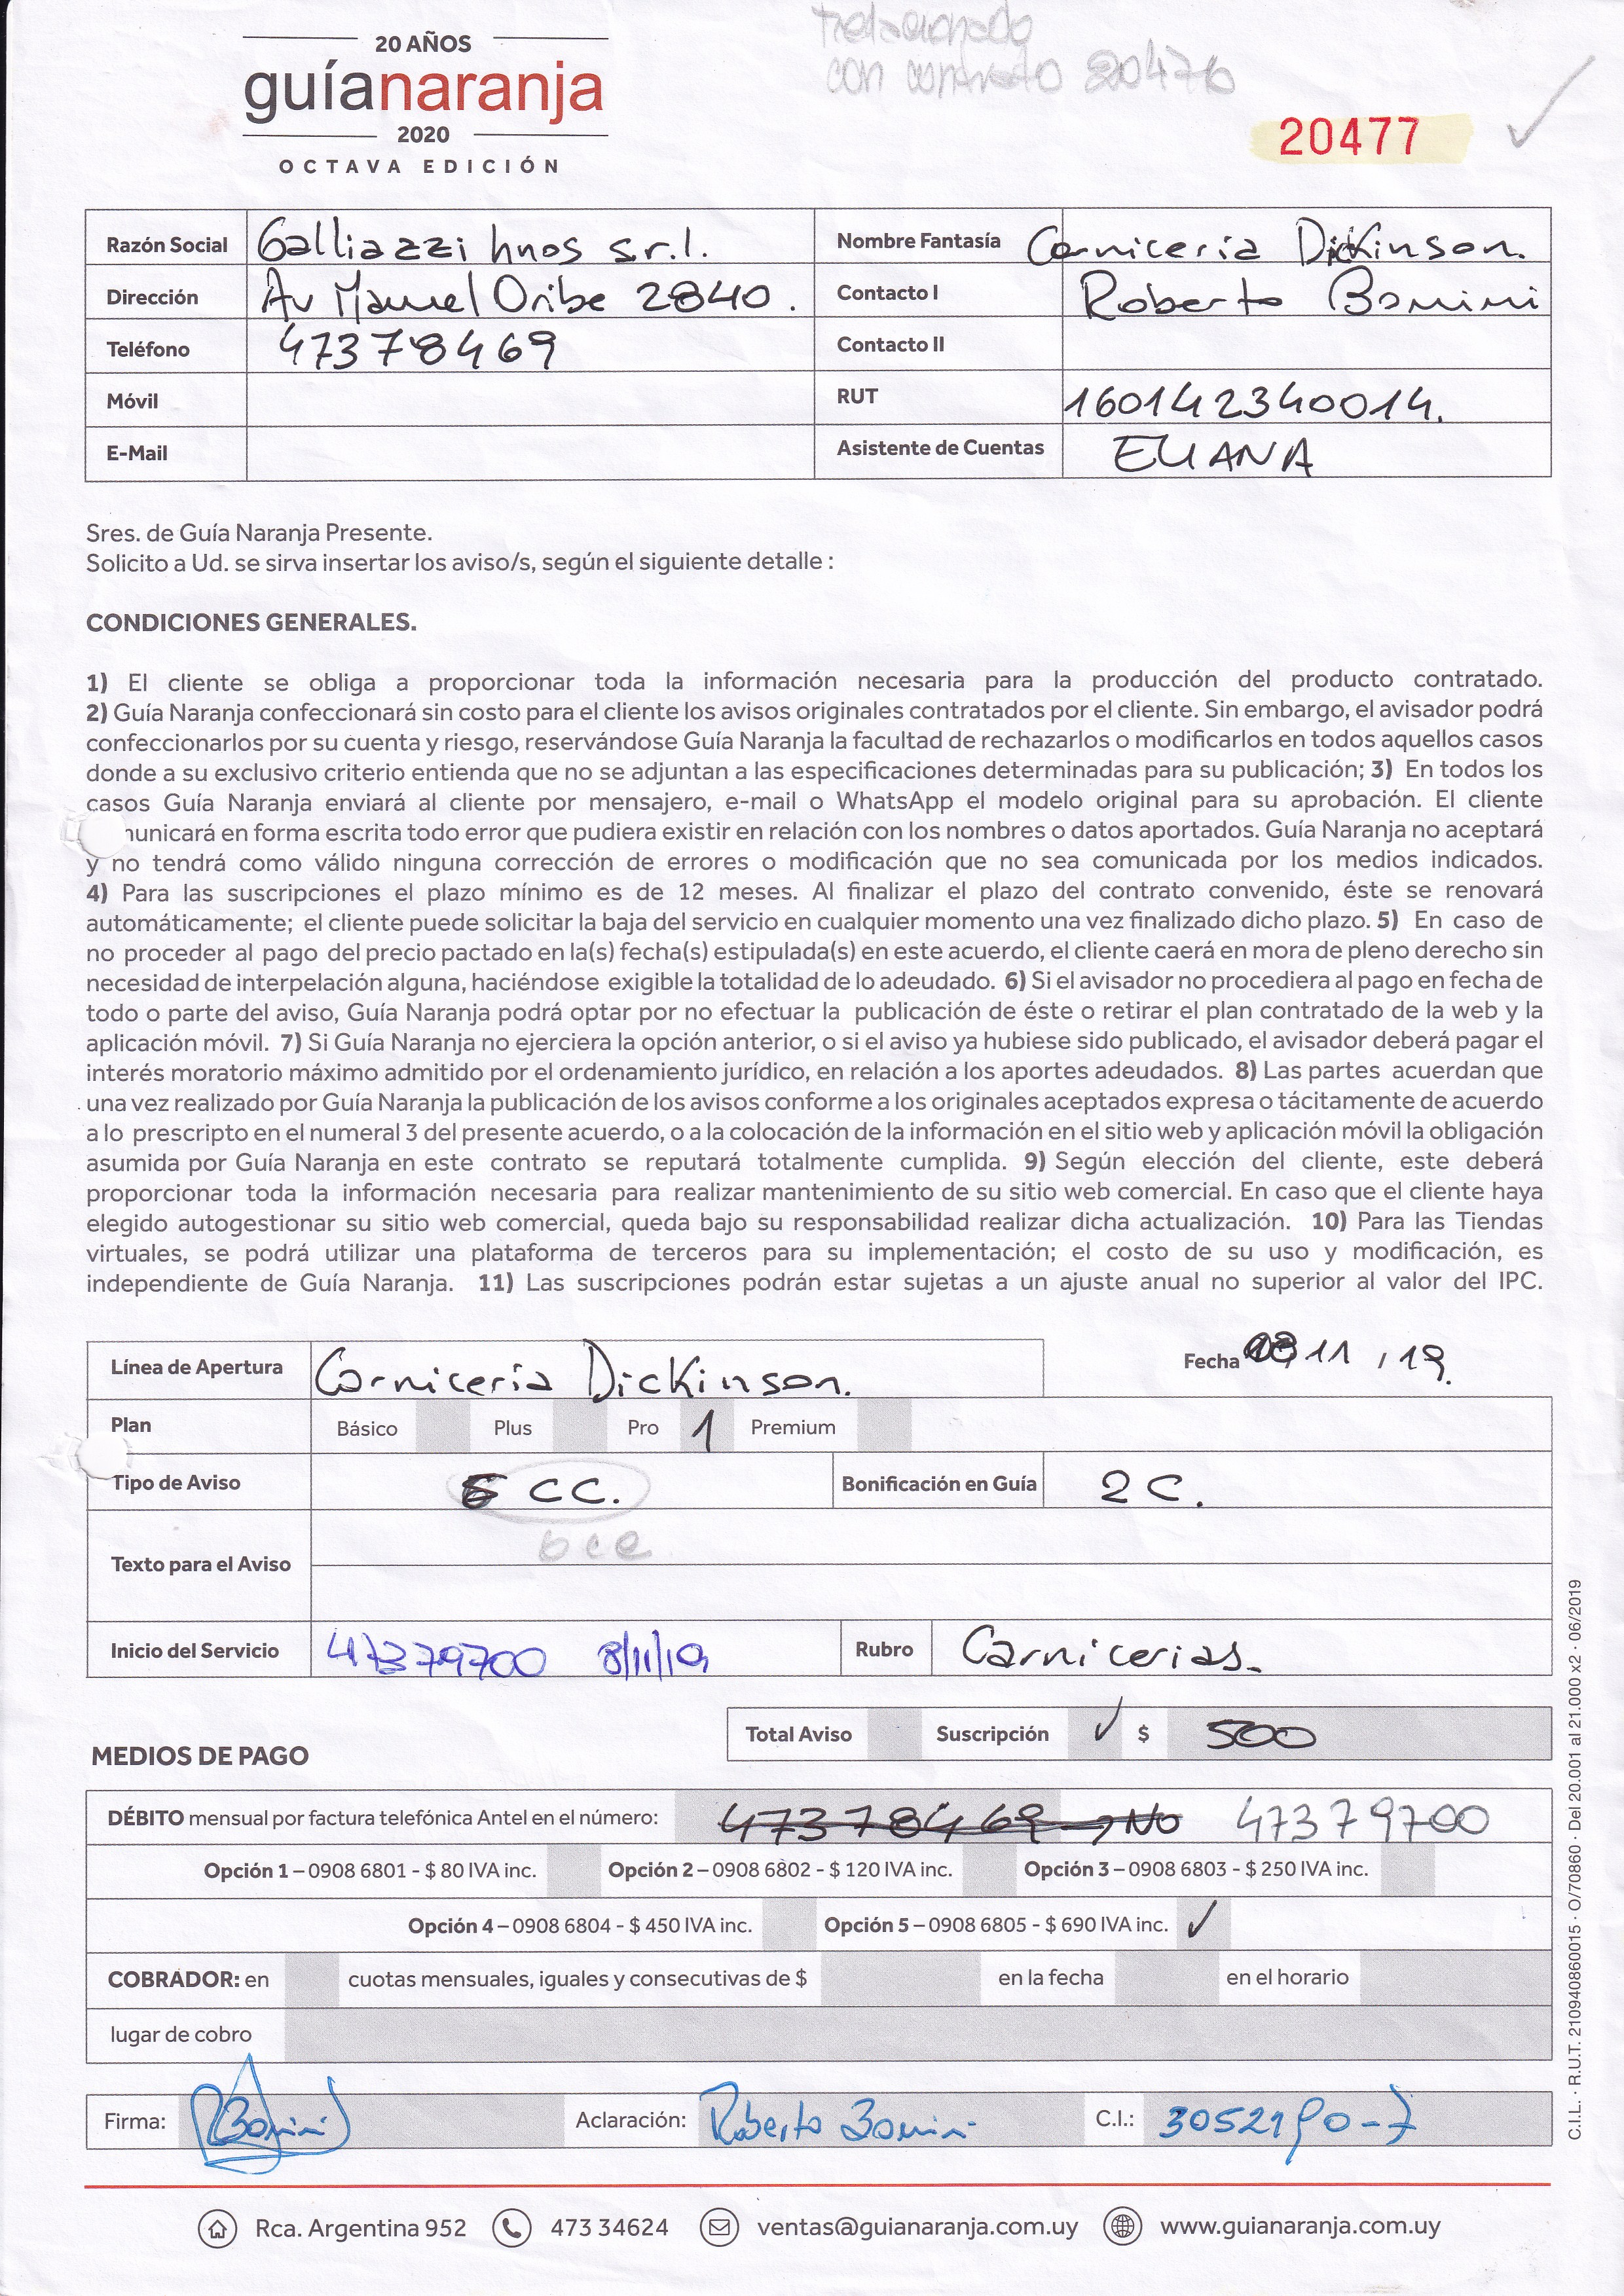 trelacionado
con contrato 20476
20 AÑOS
guíanaranja
2020
OCTAVA EDICIÓN
20477
Razón Social Galliazzi hnos s.r.l. Nombre Fantasía Carniceria Dickinson.
Dirección Av Manuel Oribe 2840. Contacto I Roberto Bonini
Teléfono 47378469 Contacto II
Móvil RUT 160142340014.
E-Mail Asistente de Cuentas ELIANA
Sres. de Guía Naranja Presente.
Solicito a Ud. se sirva insertar los aviso/s, según el siguiente detalle :
CONDICIONES GENERALES.
1) El cliente se obliga a proporcionar toda la información necesaria para la producción del producto contratado.
2) Guía Naranja confeccionará sin costo para el cliente los avisos originales contratados por el cliente. Sin embargo, el avisador podrá
confeccionarlos por su cuenta y riesgo, reservándose Guía Naranja la facultad de rechazarlos o modificarlos en todos aquellos casos
donde a su exclusivo criterio entienda que no se adjuntan a las especificaciones determinadas para su publicación; 3) En todos los
casos Guía Naranja enviará al cliente por mensajero, e-mail o WhatsApp el modelo original para su aprobación. El cliente
municará en forma escrita todo error que pudiera existir en relación con los nombres o datos aportados. Guía Naranja no aceptará
y no tendrá como válido ninguna corrección de errores o modificación que no sea comunicada por los medios indicados.
4) Para las suscripciones el plazo mínimo es de 12 meses. Al finalizar el plazo del contrato convenido, éste se renovará
automáticamente; el cliente puede solicitar la baja del servicio en cualquier momento una vez finalizado dicho plazo. 5) En caso de
no proceder al pago del precio pactado en la(s) fecha(s) estipulada(s) en este acuerdo, el cliente caerá en mora de pleno derecho sin
necesidad de interpelación alguna, haciéndose exigible la totalidad de lo adeudado. 6) Si el avisador no procediera al pago en fecha de
todo o parte del aviso, Guía Naranja podrá optar por no efectuar la publicación de éste o retirar el plan contratado de la web y la
aplicación móvil. 7) Si Guía Naranja no ejerciera la opción anterior, o si el aviso ya hubiese sido publicado, el avisador deberá pagar el
interés moratorio máximo admitido por el ordenamiento jurídico, en relación a los aportes adeudados. 8) Las partes acuerdan que
una vez realizado por Guía Naranja la publicación de los avisos conforme a los originales aceptados expresa o tácitamente de acuerdo
a lo prescripto en el numeral 3 del presente acuerdo, o a la colocación de la información en el sitio web y aplicación móvil la obligación
asumida por Guía Naranja en este contrato se reputará totalmente cumplida. 9) Según elección del cliente, este deberá
proporcionar toda la información necesaria para realizar mantenimiento de su sitio web comercial. En caso que el cliente haya
elegido autogestionar su sitio web comercial, queda bajo su responsabilidad realizar dicha actualización. 10) Para las Tiendas
virtuales, se podrá utilizar una plataforma de terceros para su implementación; el costo de su uso y modificación, es
independiente de Guía Naranja. 11) Las suscripciones podrán estar sujetas a un ajuste anual no superior al valor del IPC.
Línea de Apertura Carniceria Dickinson. Fecha 11 / 19.
Plan Básico Plus Pro 1 Premium
Tipo de Aviso 6 CC. Bonificación en Guía 2 C.
Texto para el Aviso 6cc
Inicio del Servicio 47379700 8/11/19 Rubro Carnicerias.
Total Aviso Suscripción ✓ $ 500
MEDIOS DE PAGO
DÉBITO mensual por factura telefónica Antel en el número: 47378469 → No 47379700
Opción 1 – 0908 6801 - $ 80 IVA inc. Opción 2 – 0908 6802 - $ 120 IVA inc. Opción 3 – 0908 6803 - $ 250 IVA inc.
Opción 4 – 0908 6804 - $ 450 IVA inc. Opción 5 – 0908 6805 - $ 690 IVA inc. ✓
COBRADOR: en cuotas mensuales, iguales y consecutivas de $ en la fecha en el horario
lugar de cobro
Firma: RBonini Aclaración: Roberto Bonini C.I.: 3052190-7
Rca. Argentina 952 473 34624 ventas@guianaranja.com.uy www.guianaranja.com.uy
C.I.L. · R.U.T. 210940860015 · O/70860 · Del 20.001 al 21.000 x2 · 06/2019